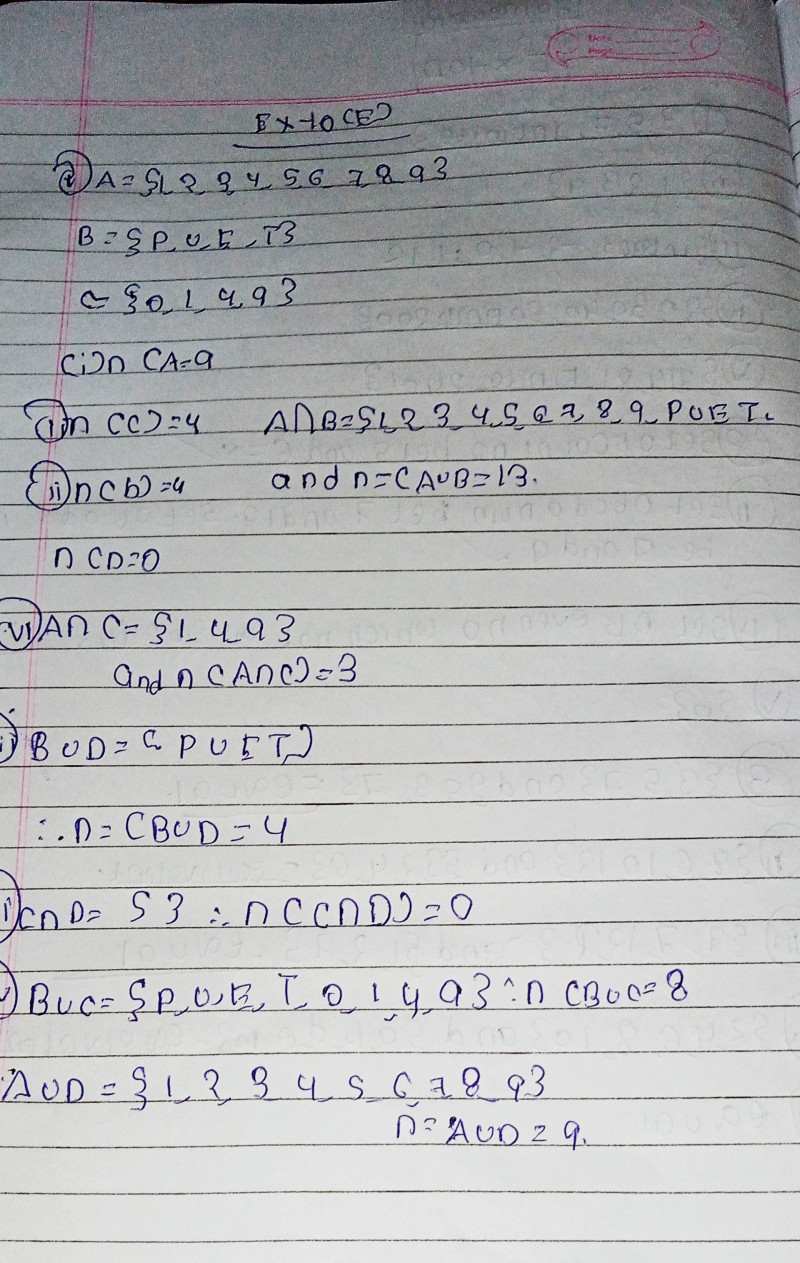 Date
Page
Ex-10(E)
② A = {1, 2, 3, 4, 5, 6, 7, 8, 9}
B = {P, U, E, T}
C = {0, 1, 4, 9}
(i) n (A = 9
(i) n (C) = 4 A∩B = {1, 2, 3, 4, 5, 6, 7, 8, 9, P U E T.
(ii) n (b) = 4 and n = (A∪B = 13.
n (D = 0
(vi) A∩C = {1, 4, 9}
and n (A∩C) = 3
i) B∪D = { P U E T, )
∴ n = (B∪D = 4
i) C∩D = { } ∴ n (C∩D) = 0
B∪C = {P, U, E, T, 0, 1, 4, 9} ∴ n (B∪C = 8
A∪D = {1, 2, 3, 4, 5, 6, 7, 8, 9}
n = A∪D = 9.